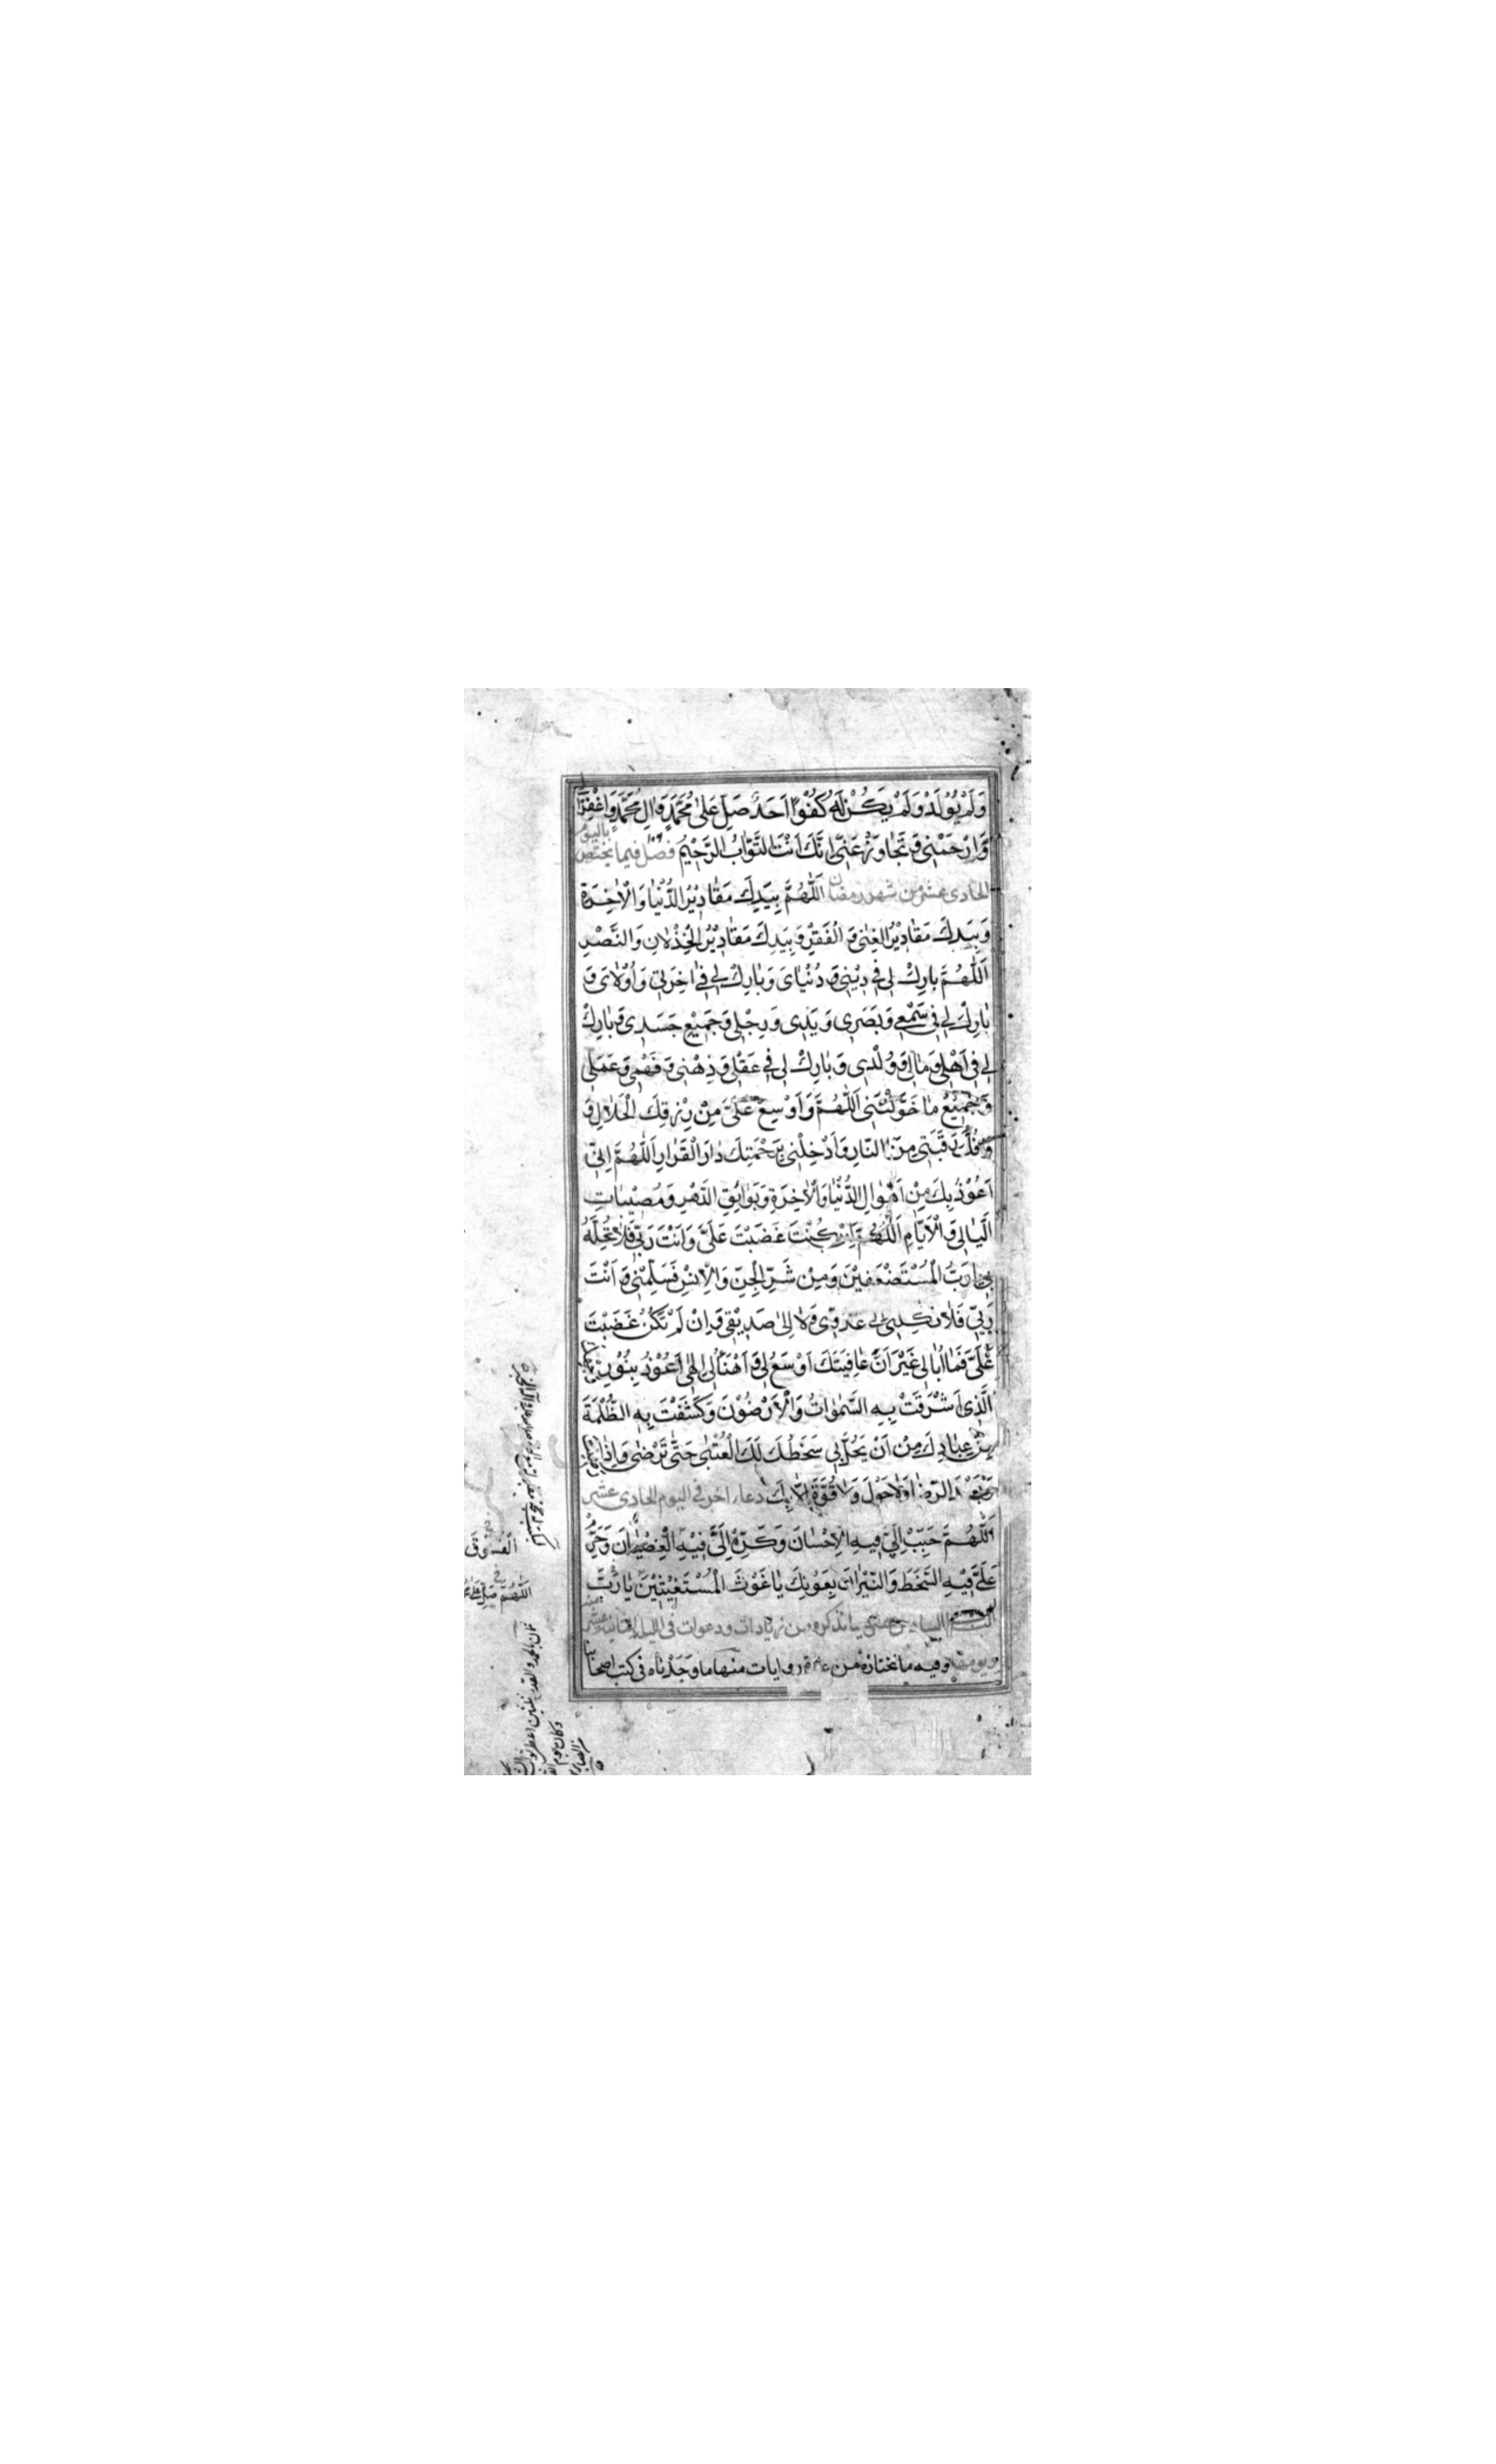 وَلَمْ يُوْلَدْ وَلَمْ يَكُنْ لَهُ كُفُوًا اَحَدٌ صَلِّ عَلىٰ مُحَمَّدٍ وَاٰلِ مُحَمَّدٍ وَاغْفِرْ لِيْ
وَارْحَمْنِي وَتَجٰاوَزْ عَنّى اِنَّكَ اَنْتَ التَّوّٰابُ الرَّحِيْمُ فصل فيما يختص باليوم
الحادى عشر من شهر رمضان اَللّٰهُمَّ بِيَدِكَ مَقٰادِيْرُ الدُّنْيٰا وَالْاٰخِرَةِ
وَبِيَدِكَ مَقٰادِيْرُ الغِنٰى وَالْفَقْرِ وَبِيَدِكَ مَقٰادِيْرُ الْخِذْلٰانِ وَالنَّصْرِ
اَللّٰهُمَّ بارِكْ لى فى دِيْنِي وَدُنْيٰاىَ وَبٰارِكْ لِي فِي اٰخِرَتِي وَاُوْلٰاىَ وَ
بٰارِكْ لِي فِي سَمْعِي وَبَصَرِى وَيَدِى وَرِجْلِي وَجَمِيْعِ جَسَدِى وَبٰارِكْ
لِي فِي اَهْلِي وَمٰالِي وَوُلْدِى وَبٰارِكْ لِى فِي عَقْلِي وَذِهْنِي وَفَهْمِي وَعَمَلِي
وَجَمِيْعِ مٰا خَوَّلْتَنِي اَللّٰهُمَّ وَاَوْسِعْ عَلَيَّ مِنْ رِزْقِكَ الْحَلٰالِ وَ
فُكَّ رَقَبَتِي مِنَ النّارِ وَاَدْخِلْنِي بِرَحْمَتِكَ دٰارَ الْقَرٰارِ اَللّٰهُمَّ اِنّي
اَعُوْذُ بِكَ مِنْ اَهْوٰالِ الدُّنْيٰا وَالْاٰخِرَةِ وَبَوٰائِقِ الدَّهْرِ وَمُصْيبٰاتِ
اللَّيٰالِى وَالْاَيّٰامِ اَللّٰهُمَّ اِنْ كُنْتَ غَضَبْتَ عَلَيَّ وَاَنْتَ رَبّي فَلٰا تُحِلَّهُ
بِي يٰا رَبُّ الْمُسْتَضْعَفِيْنَ وَمِنْ شَرِّ الْجِنِّ وَالْاِنْسِ فَسَلِّمْنِي وَاَنْتَ
رَبّي فَلٰا تَكِلْنِي اِلىٰ عَدُوّى وَلٰا اِلىٰ صَدِيْقِي وَاِنْ لَمْ تَكُنْ غَضَبْتَ
عَلَيَّ فَمٰا اُبٰالِى غَيْرَ اَنَّ عٰافِيَتَكَ اَوْسَعُ لِي وَاَهْنَأُ لِى اِلٰهِي اَعُوْذُ بِنُوْرِ
الَّذِى اَشْرَقَتْ بِهِ السَّمٰوٰاتُ وَالْاَرْضُوْنَ وَكَشَفْتَ بِهِ الظُّلْمَةَ
عَنْ عِبٰادِكَ مِنْ اَنْ يَحُلَّ بِي سَخَطُكَ لَكَ الْعُتْبٰى حَتّٰى تَرْضٰى وَاِذٰا
الرِّضٰا وَلٰا حَوْلَ وَلٰا قُوَّةَ اِلّٰا بِكَ دعاء اخر فى اليوم الحادى عشر
اَللّٰهُمَّ حَبِّبْ اِلَيَّ فِيهِ الْاِحْسٰانَ وَكَرِّهْ اِلَيَّ فِيْهِ الْعِصْيٰانَ وَحَرِّمْ
عَلَيَّ فِيْهِ السَّخَطَ وَالنّيْرٰانَ بِعَوْنِكَ يٰا غَوْثَ الْمُسْتَغِيْثِيْنَ يٰا رَبَّ
الباب السادس عشر فيما نذكره من زيادات ودعوات فى الليلة الثانية عشر
ويومها وفيه ما نختاره من عدة روايات منها ما وجدناه فى كتب اصحابنا
الْفُسُوْقَ
اَللّٰهُمَّ صَلِّ عَلٰى